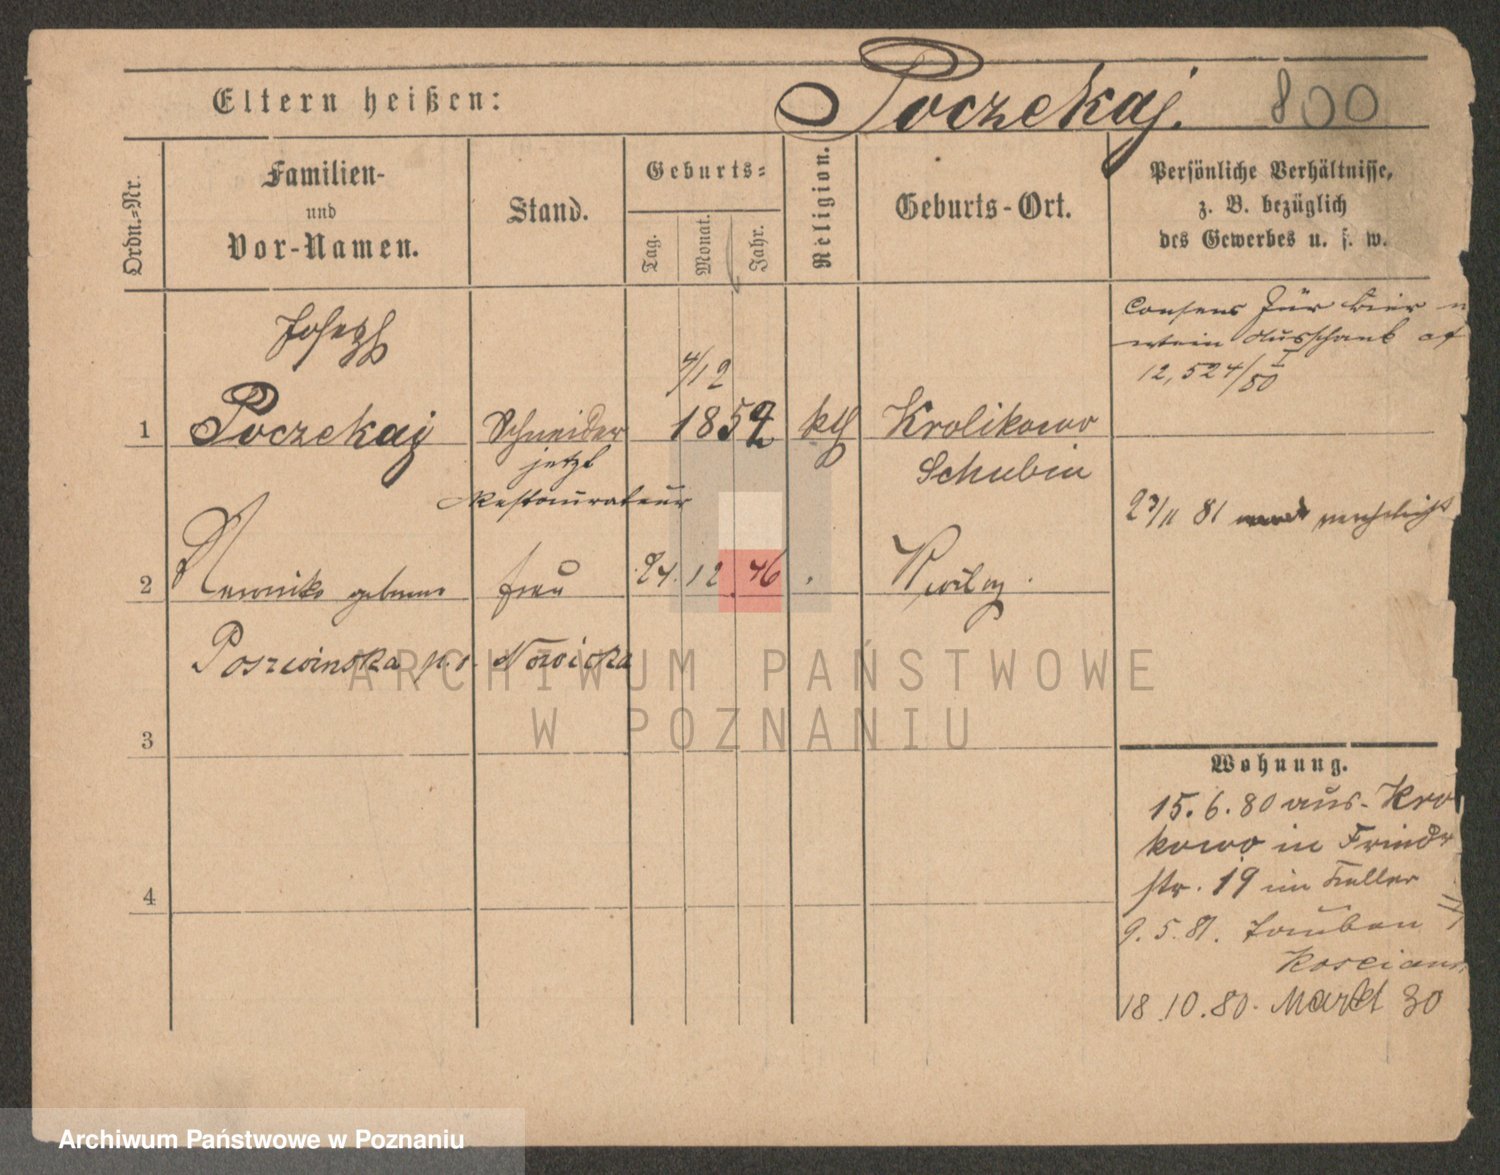 Eltern heißen: Poczekaj. 800
Ordn.=Nr.
Familien-
und
Vor-Namen.
Stand.
Geburts=
Tag.
Monat.
Jahr.
Religion.
Geburts-Ort.
Persönliche Verhältnisse,
z. B. bezüglich
des Gewerbes u. s. w.
Consens für Bier
wein Ausschank
12,524/80 I
Joseph
4/12
1 Poczekaj Schneider 185 kth Krolikowo
jetzt Schubin
Restaurateur
27/11 81 verehelicht
2 geborne frau 24. 12. 46
Poszwinska Nowicka
3
Wohnung.
15. 6. 80 aus Kro
kowo in Friedr
str. 19 im Keller
4
9. 5. 81.
Koscian
18.10.80. Markt 30
ARCHIWUM PAŃSTWOWE
W POZNANIU
Archiwum Państwowe w Poznaniu